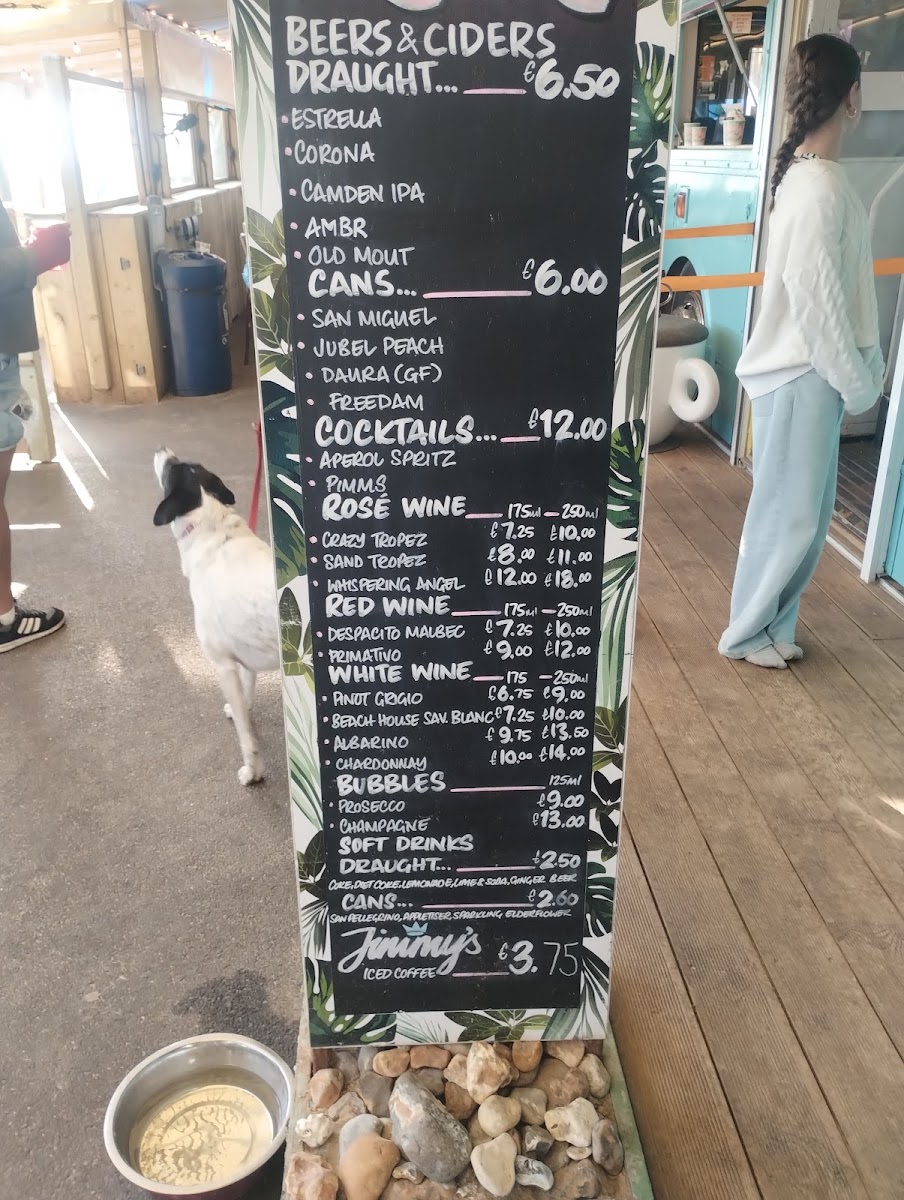 BEERS & CIDERS
DRAUGHT... £6.50
• ESTRELLA
• CORONA
• CAMDEN IPA
• AMBR
• OLD MOUT
CANS... £6.00
• SAN MIGUEL
• JUBEL PEACH
• DAURA (GF)
• FREEDAM
COCKTAILS... £12.00
• APEROL SPRITZ
• PIMMS
ROSÉ WINE 175ml — 250ml
• CRAZY TROPEZ £7.25 £10.00
• SAND TROPEZ £8.00 £11.00
• WHISPERING ANGEL £12.00 £18.00
RED WINE 175ml — 250ml
• DESPACITO MALBEC £7.25 £10.00
• PRIMATIVO £9.00 £12.00
WHITE WINE 175 — 250ml
• PINOT GRIGIO £6.75 £9.00
• BEACH HOUSE SAV. BLANC £7.25 £10.00
• ALBARINO £9.75 £13.50
• CHARDONNAY £10.00 £14.00
BUBBLES 125ml
• PROSECCO £9.00
• CHAMPAGNE £13.00
SOFT DRINKS
DRAUGHT... £2.50
COKE, DIET COKE, LEMONADE, LIME & SODA, GINGER BEER
CANS... £2.60
SAN PELLEGRINO, APPLETISER, SPARKLING ELDERFLOWER
Jimmy's £3.75
ICED COFFEE